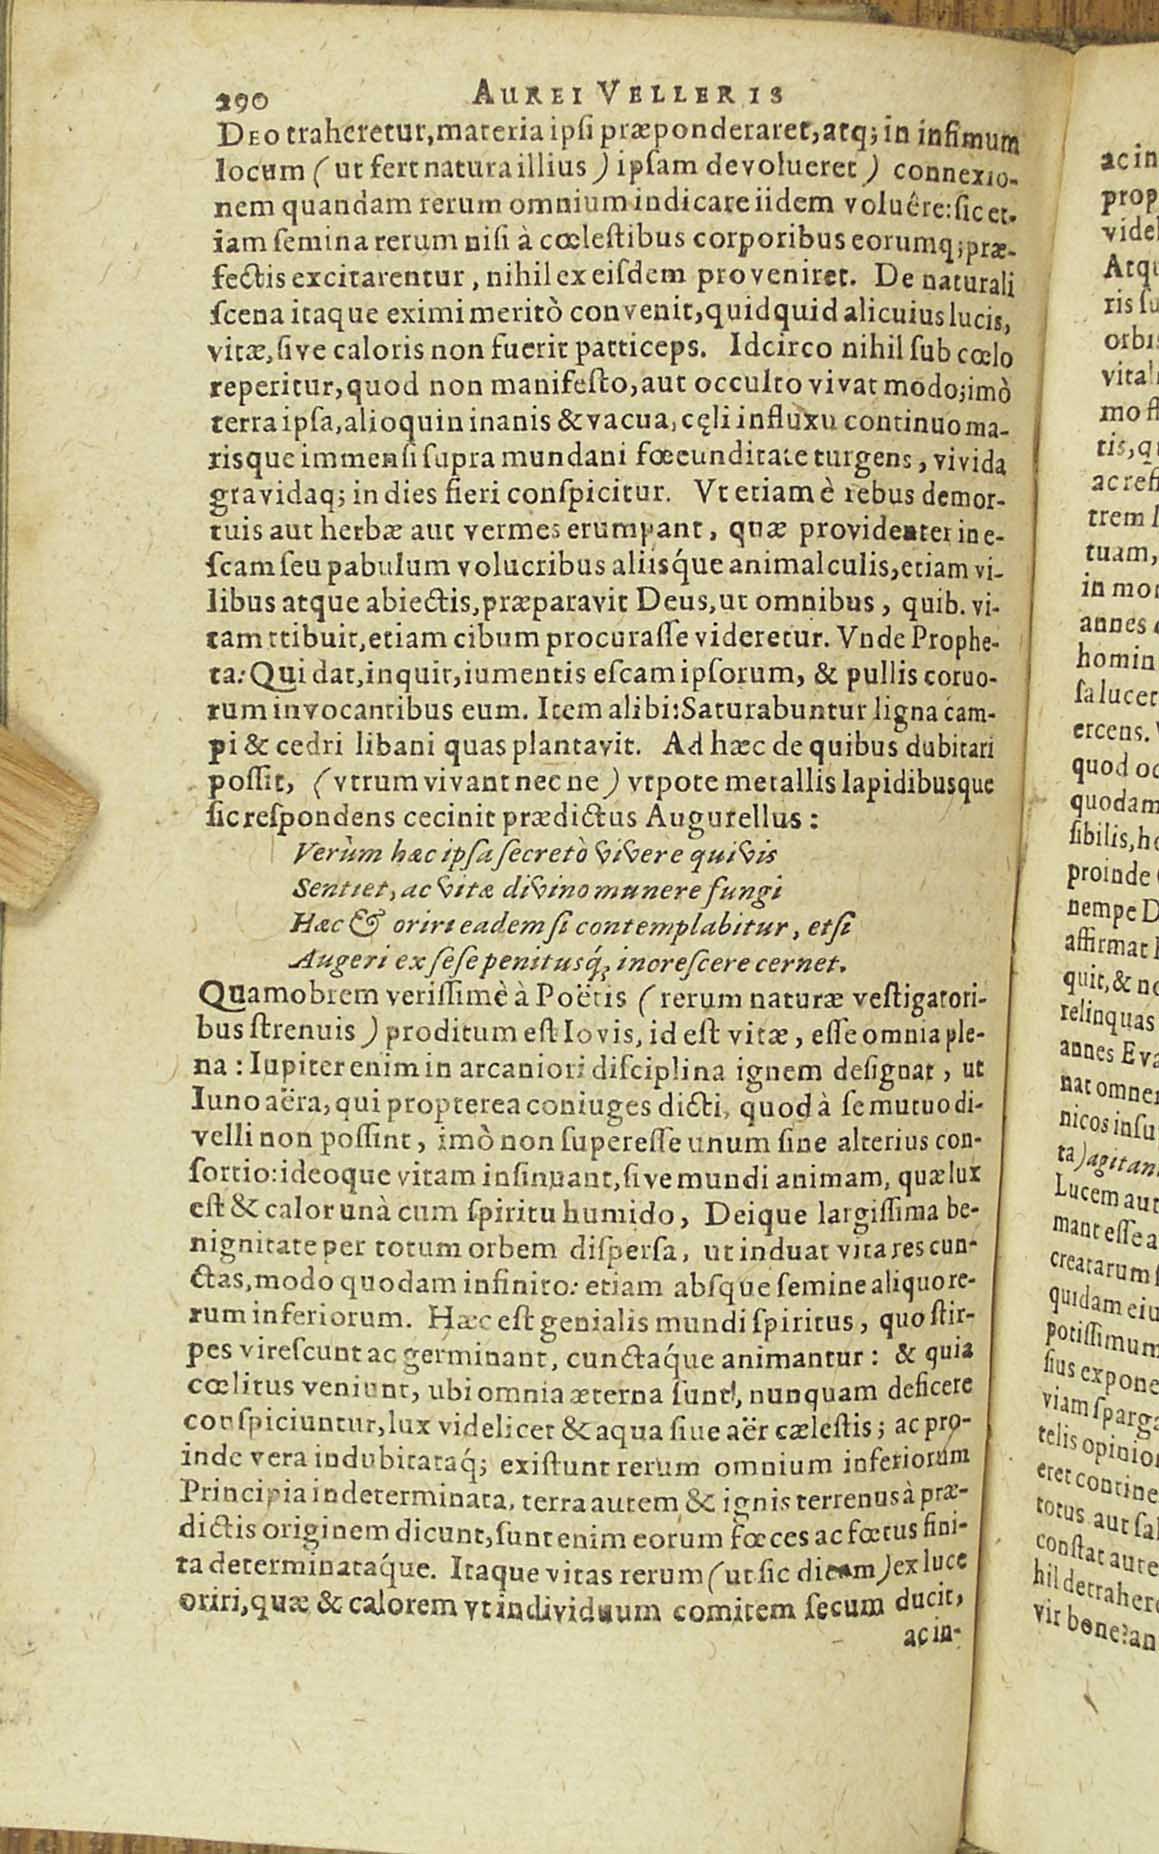 290 AUREI VELLERIS
DEO traheretur, materia ipſi præponderaret, atq; in infimum
locum (ut fert natura illius) ipſam devolueret) connexio-
nem quandam rerum omnium indicare iidem voluêre: ſic et-
iam ſemina rerum niſi à cœleſtibus corporibus eorumq; præ-
fectis excitarentur, nihil ex eiſdem proveniret. De naturali
ſcena itaque eximi meritò convenit, quidquid alicuius lucis,
vitæ, ſive caloris non fuerit particeps. Idcirco nihil ſub cœlo
reperitur, quod non manifeſto, aut occulto vivat modo; imò
terra ipſa, alioquin inanis & vacua, cęli influxu continuo ma-
risque immenſi ſupra mundani fœcunditate turgens, vivida
gravidaq; in dies fieri conſpicitur. Vt etiam è rebus demor-
tuis aut herbæ aut vermes erumpant, quæ providenter in e-
ſcam ſeu pabulum volucribus aliisq́ue animalculis, etiam vi-
libus atque abiectis, præparavit Deus, ut omnibus, quib. vi-
tam tribuit, etiam cibum procuraſſe videretur. Vnde Prophe-
ta: Qui dat, inquit, iumentis eſcam ipſorum, & pullis corvo-
rum invocantibus eum. Item alibi: Saturabuntur ligna cam-
pi & cedri libani quas plantavit. Ad hæc de quibus dubitari
poſſit, (vtrum vivant nec ne) vtpote metallis lapidibusque
ſic reſpondens cecinit prædictus Augurellus:
Verùm hæc ipſa ſecretò vivere quivis
Sentiet, ac vitæ divino munere fungi
Hæc & oriri eadem ſi contemplabitur, etſi
Augeri ex ſeſe penitusq́; increſcere cernet.
Quamobrem veriſſimè à Poëtis (rerum naturæ veſtigatori-
bus ſtrenuis) proditum eſt Iovis, id eſt vitæ, eſſe omnia ple-
na: Iupiter enim in arcaniori diſciplina ignem deſignat, ut
Iuno aëra, qui propterea coniuges dicti, quod à ſe mutuo di-
velli non poſſint, imò non ſupereſſe unum ſine alterius con-
ſortio: ideoque vitam inſinuant, ſive mundi animam, quæ lux
eſt & calor unà cum ſpiritu humido, Deique largiſſima be-
nignitate per totum orbem diſperſa, ut induat vita res cun-
ctas, modo quodam infinito: etiam absque ſemine aliquo re-
rum inferiorum. Hæc eſt genialis mundi ſpiritus, quo ſtir-
pes vireſcunt ac germinant, cunctaq́ue animantur: & quia
cœlitus veniunt, ubi omnia æterna ſunt, nunquam deficere
conſpiciuntur, lux videlicet & aqua ſiue aër cæleſtis; ac pro-
inde vera indubitataq́; exiſtunt rerum omnium inferiorum
Principia indeterminata, terra autem & ignis terrenus à præ-
dictis originem dicunt, ſunt enim eorum fœces ac fœtus fini-
ta determinataq́ue. Itaque vitas rerum (ut ſic dicam) ex luce
oriri, quæ & calorem vt individuum comitem ſecum ducit,
ac in-
ac in
prop
vide
Atqu
ris ſu
orbis
vital
mo fl
tis, q
ac refi
trem
tuam,
in mo
annes
homin
ſa lucet
ercens.
quod oc
quodam
ſibilis, ho
proinde
nempe D
affirmat
quit, & no
relinquas
annes Eva
nat omne
nicos inſu
ta) agitan
Lucem aut
mant eſſe a
creatarum
quidam eiu
potiſſimum
ſius expone
viam ſparg
telis opinio
eret contine
totus aut ſa
conſtat aute
hil detraher
vir bone? an